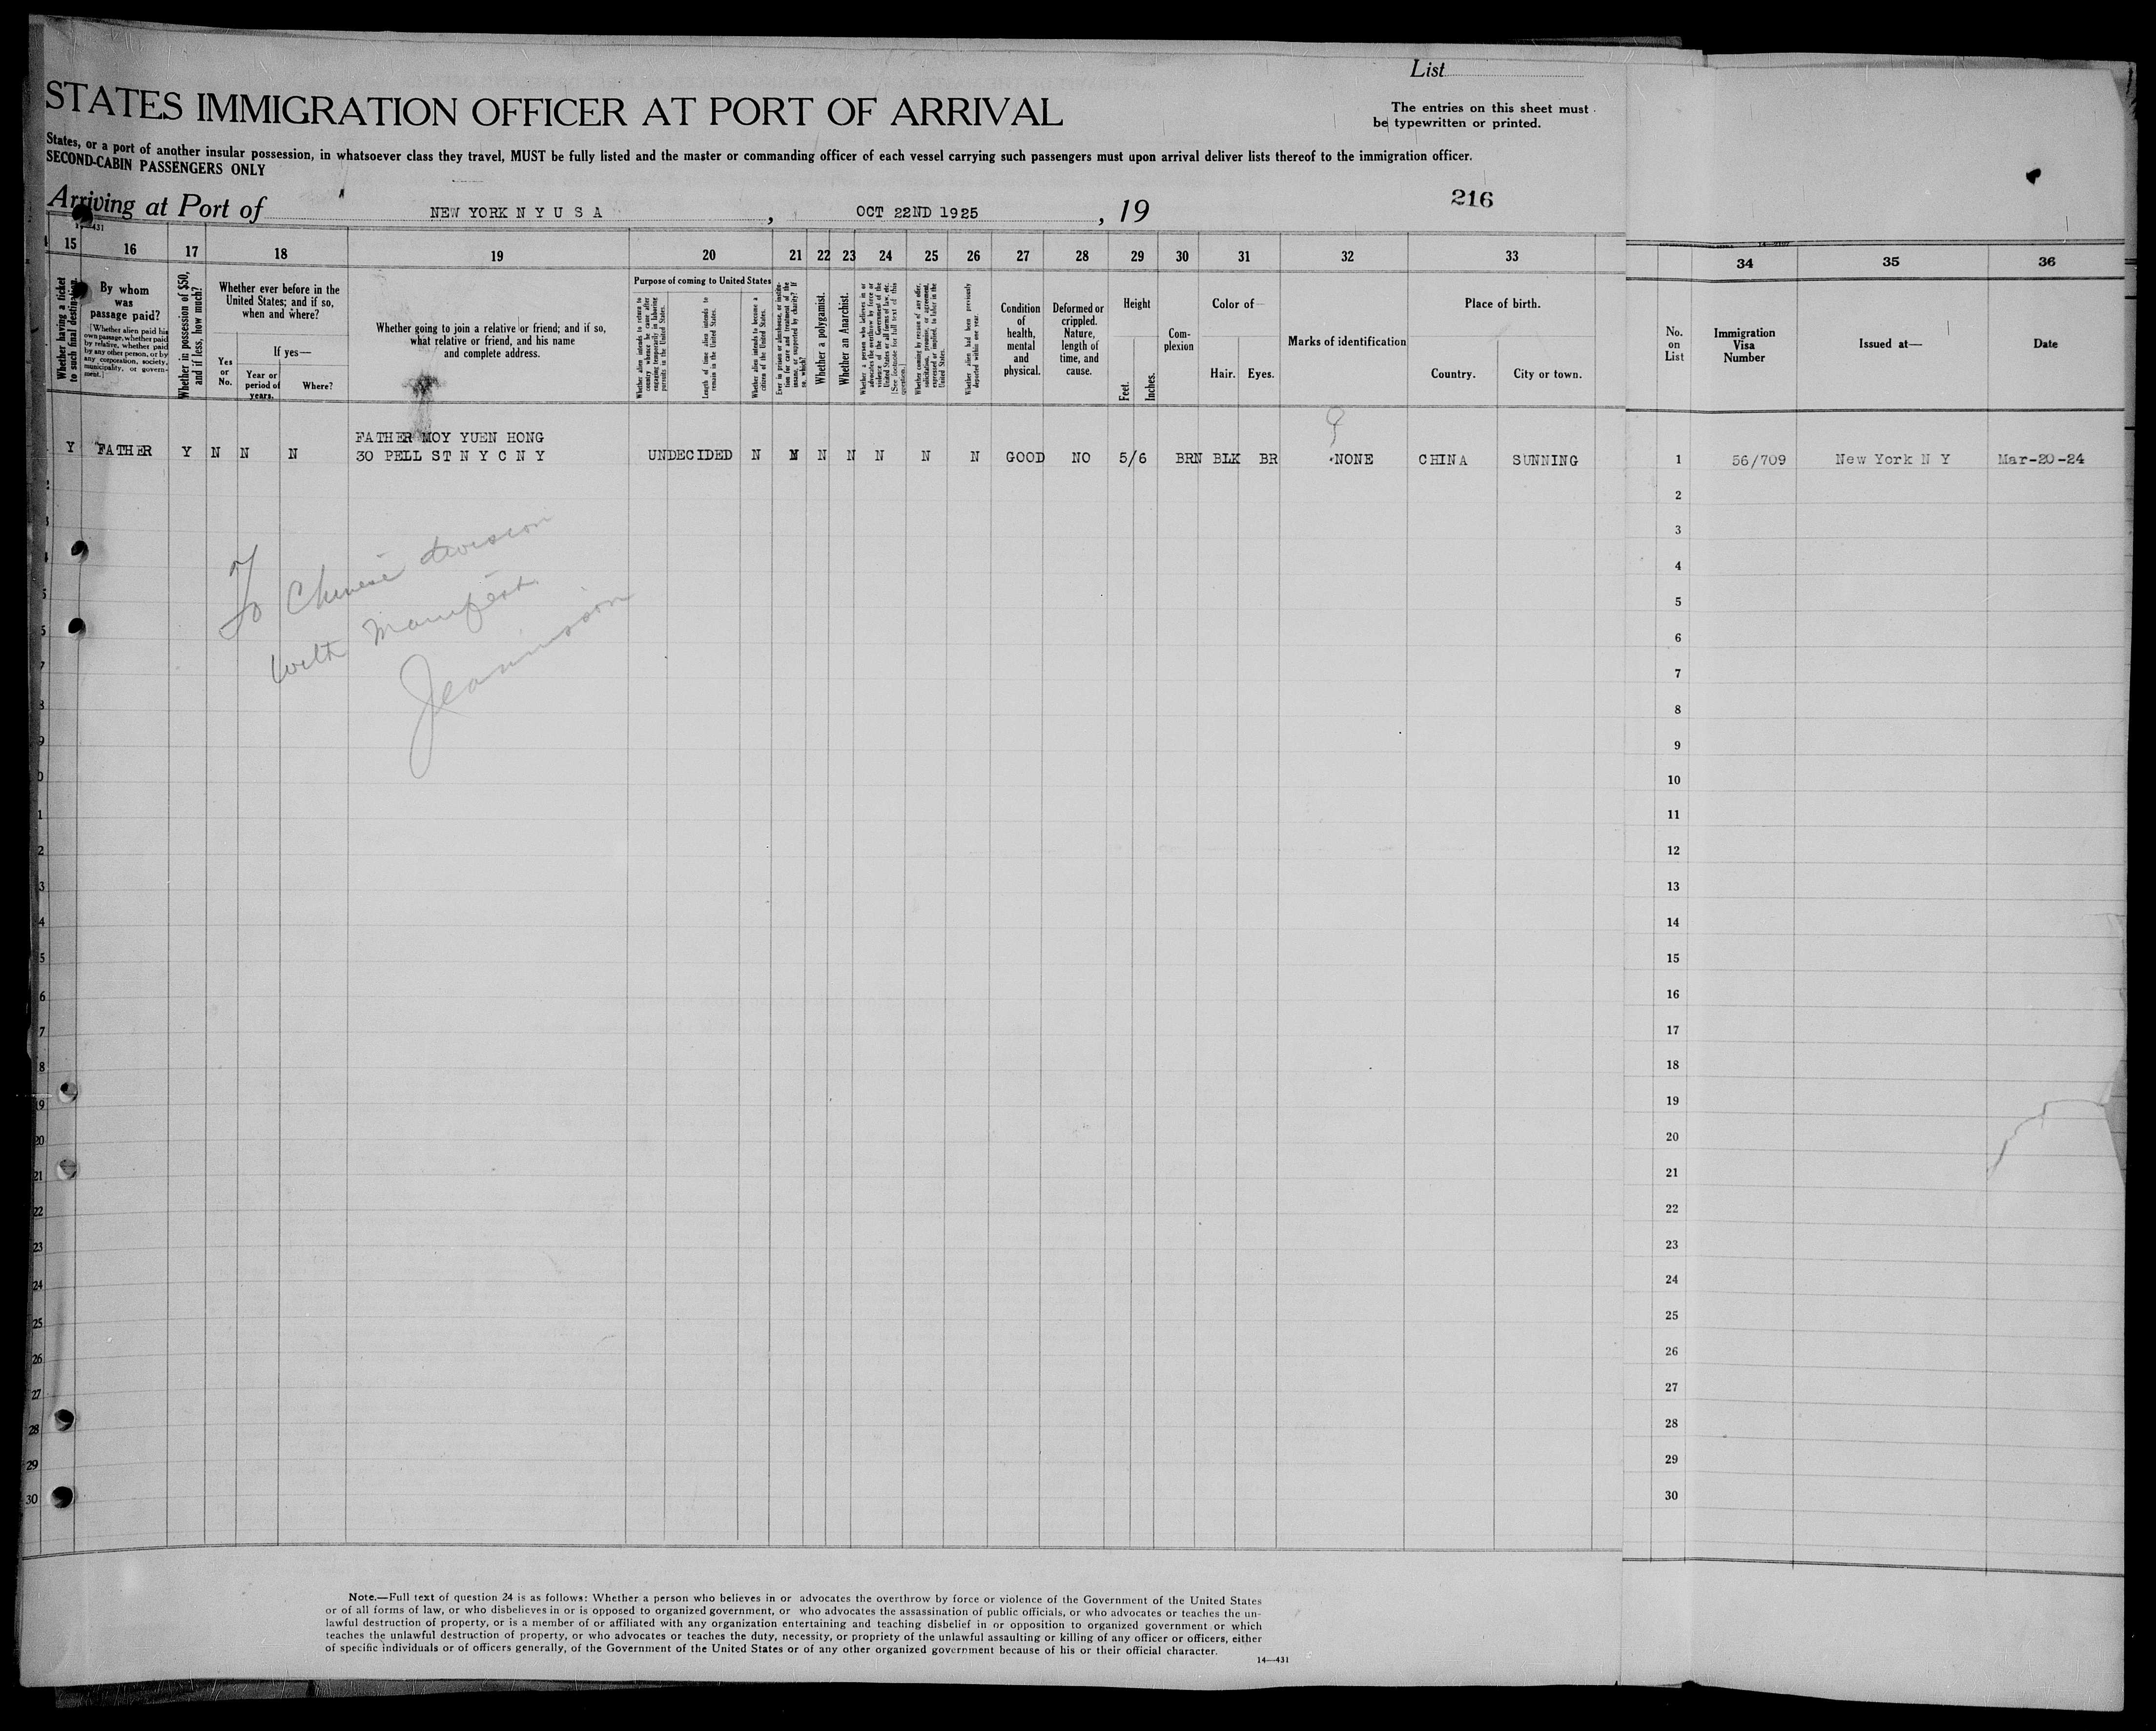 List
STATES IMMIGRATION OFFICER AT PORT OF ARRIVAL
The entries on this sheet must
be typewritten or printed.
States, or a port of another insular possession, in whatsoever class they travel, MUST be fully listed and the master or commanding officer of each vessel carrying such passengers must upon arrival deliver lists thereof to the immigration officer.
SECOND-CABIN PASSENGERS ONLY
216
Arriving at Port of NEW YORK N Y U S A , OCT 22ND 1925 , 19
15 16 17 18 19 20 21 22 23 24 25 26 27 28 29 30 31 32 33 34 35 36
Whether having a ticket to such final destination.
By whom was passage paid?
[Whether alien paid his own passage, whether paid by relative, whether paid by any other person, or by any corporation, society, municipality, or government.]
Whether in possession of $50, and if less, how much?
Whether ever before in the United States; and if so, when and where?
Yes or No.
If yes—
Year or period of years.
Where?
Whether going to join a relative or friend; and if so, what relative or friend, and his name and complete address.
Purpose of coming to United States
Whether alien intends to return to country whence he came after engaging temporarily in laboring pursuits in the United States.
Length of time alien intends to remain in the United States.
Whether alien intends to become a citizen of the United States.
Ever in prison or almshouse, or institution for care and treatment of the insane, or supported by charity? If so, which?
Whether a polygamist.
Whether an Anarchist.
Whether a person who believes in or advocates the overthrow by force or violence of the Government of the United States or all forms of law, etc. [See footnote for full text of this question.]
Whether coming by reason of any offer, solicitation, promise, or agreement, expressed or implied, to labor in the United States.
Whether alien had been previously deported within one year
Condition of health, mental and physical.
Deformed or crippled. Nature, length of time, and cause.
Height
Feet. Inches.
Com-plexion
Color of—
Hair. Eyes.
Marks of identification
Place of birth.
Country. City or town.
No. on List
Immigration Visa Number
Issued at—
Date
FATHER MOY YUEN HONG
Y FATHER Y N N N 30 PELL ST N Y C N Y UNDECIDED N N N N N N N GOOD NO 5/6 BRN BLK BR NONE CHINA SUNNING 1 56/709 New York N Y Mar-20-24
2
3
4
5
6
7
8
9
10
11
12
13
14
15
16
17
18
19
20
21
22
23
24
25
26
27
28
29
30
To Chinese division
with manifest
Note.—Full text of question 24 is as follows: Whether a person who believes in or advocates the overthrow by force or violence of the Government of the United States
or of all forms of law, or who disbelieves in or is opposed to organized government, or who advocates the assassination of public officials, or who advocates or teaches the un-
lawful destruction of property, or is a member of or affiliated with any organization entertaining and teaching disbelief in or opposition to organized government or which
teaches the unlawful destruction of property, or who advocates or teaches the duty, necessity, or propriety of the unlawful assaulting or killing of any officer or officers, either
of specific individuals or of officers generally, of the Government of the United States or of any other organized government because of his or their official character.
14—431